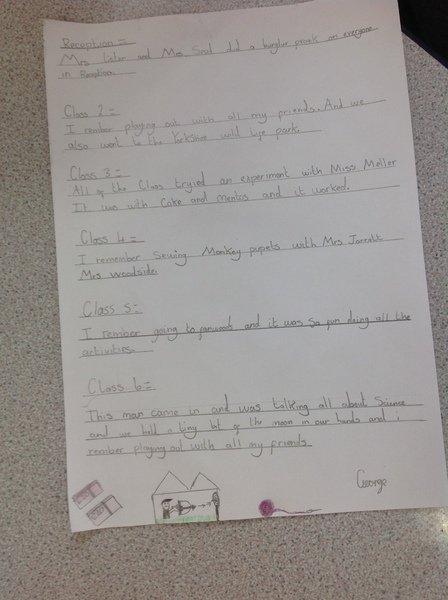 Reception =
Mrs Lister and Mrs Soul did a burglur prank on everyone
in Reception.
Class 2 =
I rember playing out with all my friends. And we
also went to the Yorkshire wild lye park.
Class 3 =
All of the Class tryied an experiment with Miss Meller
It was with Coke and mentos and it worked.
Class 4 =
I remember sewing Monkey pupets with Mrs Jarratt
Mrs Woodside.
Class 5 =
I rember going to and it was so fun doing all the
activities.
Class 6 =
This man came in and was talking all about Science
and we held a tiny bit of the moon in our hands and i
rember playing out with all my friends
George